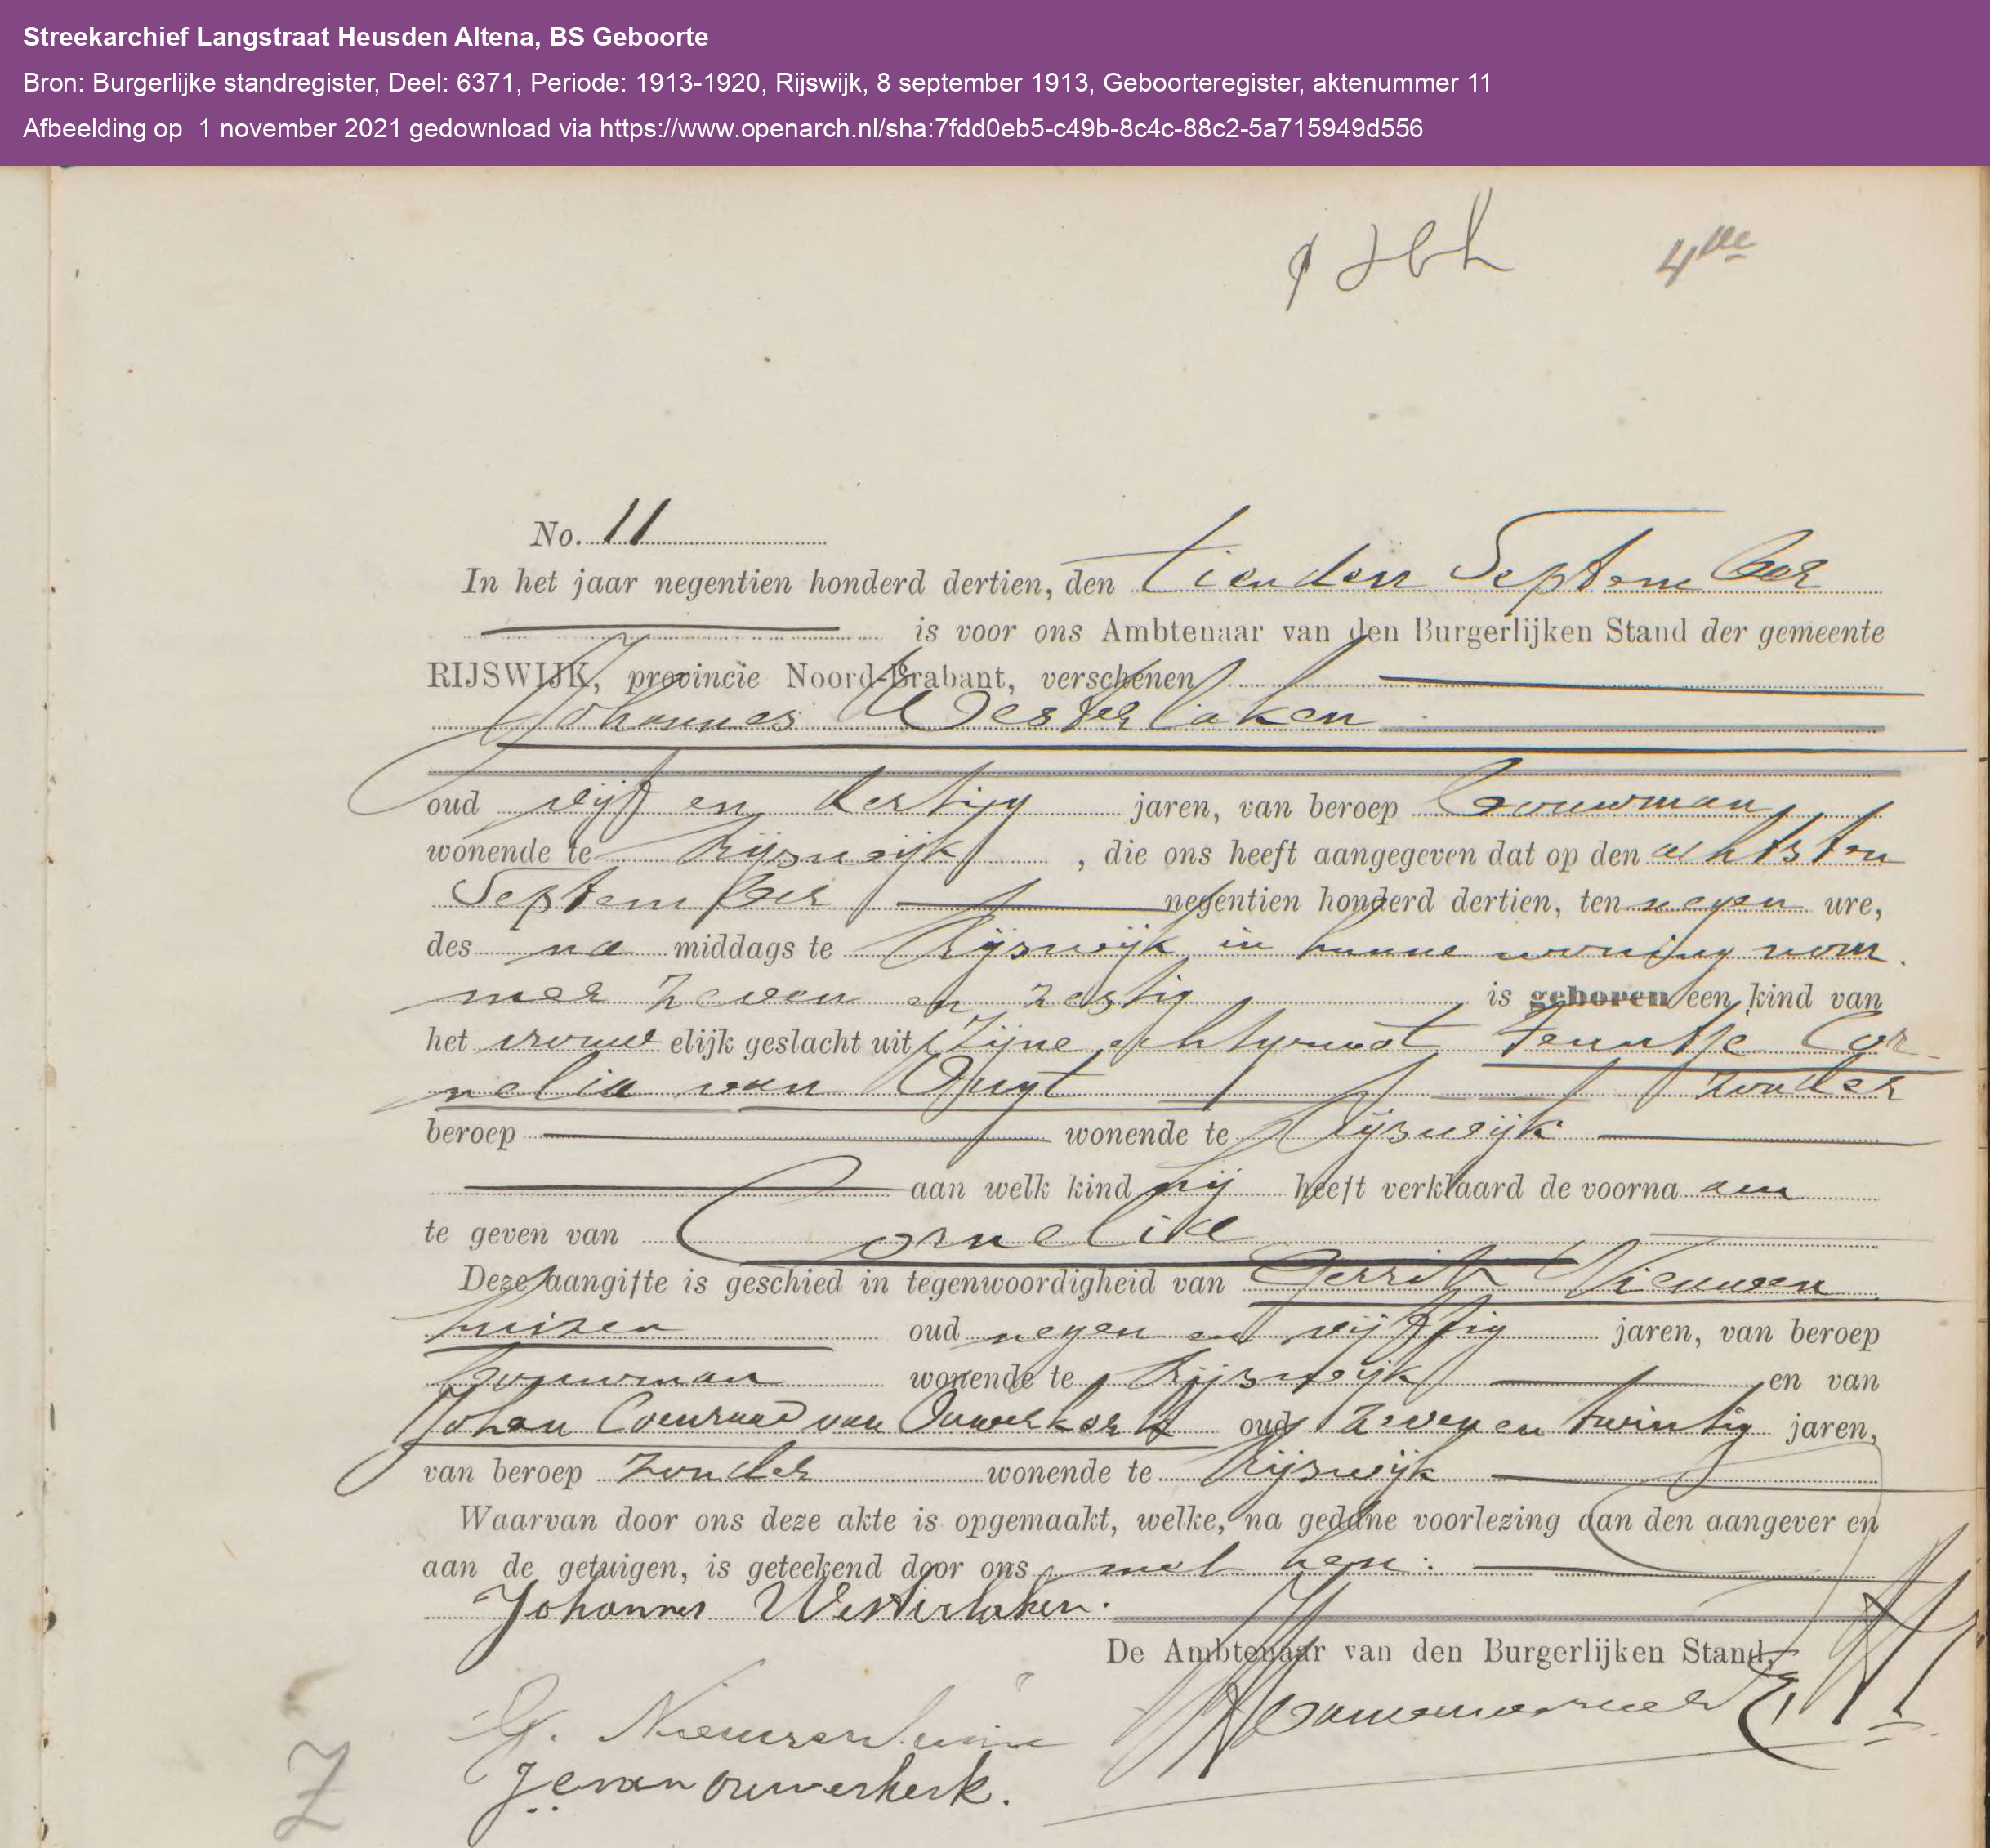 Streekarchief Langstraat Heusden Altena, BS Geboorte
Bron: Burgerlijke standregister, Deel: 6371, Periode: 1913-1920, Rijswijk, 8 september 1913, Geboorteregister, aktenummer 11
Afbeelding op  1 november 2021 gedownload via https://www.openarch.nl/sha:7fdd0eb5-c49b-8c4c-88c2-5a715949d556
No. 11
In het jaar negentien honderd dertien, den tienden September
is voor ons Ambtenaar van den Burgerlijken Stand der gemeente
RIJSWIJK, provincie Noord-Brabant, verschenen
Johannes Westerlaken
oud vijf en dertig jaren, van beroep bouwman
wonende te Rijswijk, die ons heeft aangegeven dat op den achtsten
September negentien honderd dertien, ten negen ure,
des na middags te Rijswijk in hunne woning nom
mer zeven en zestig is geboren een kind van
het vrouwelijk geslacht uit zijne echtgenoot Teuntje Cor-
nelia van Vugt zonder
beroep wonende te Rijswijk
aan welk kind hij heeft verklaard de voornaam
te geven van Cornelia
Deze aangifte is geschied in tegenwoordigheid van Gerrit Nieuwen
huizen oud negen en vijftig jaren, van beroep
bouwman wonende te Rijswijk en van
Johan Coenraad van Ouwerkerk oud zeven en twintig jaren,
van beroep zonder wonende te Rijswijk
Waarvan door ons deze akte is opgemaakt, welke, na gedane voorlezing aan den aangever en
aan de getuigen, is geteekend door ons met hen:
Johannes Westerlaken.
De Ambtenaar van den Burgerlijken Stand,
G. Nieuwenhuizen
J C van Ouwerkerk.